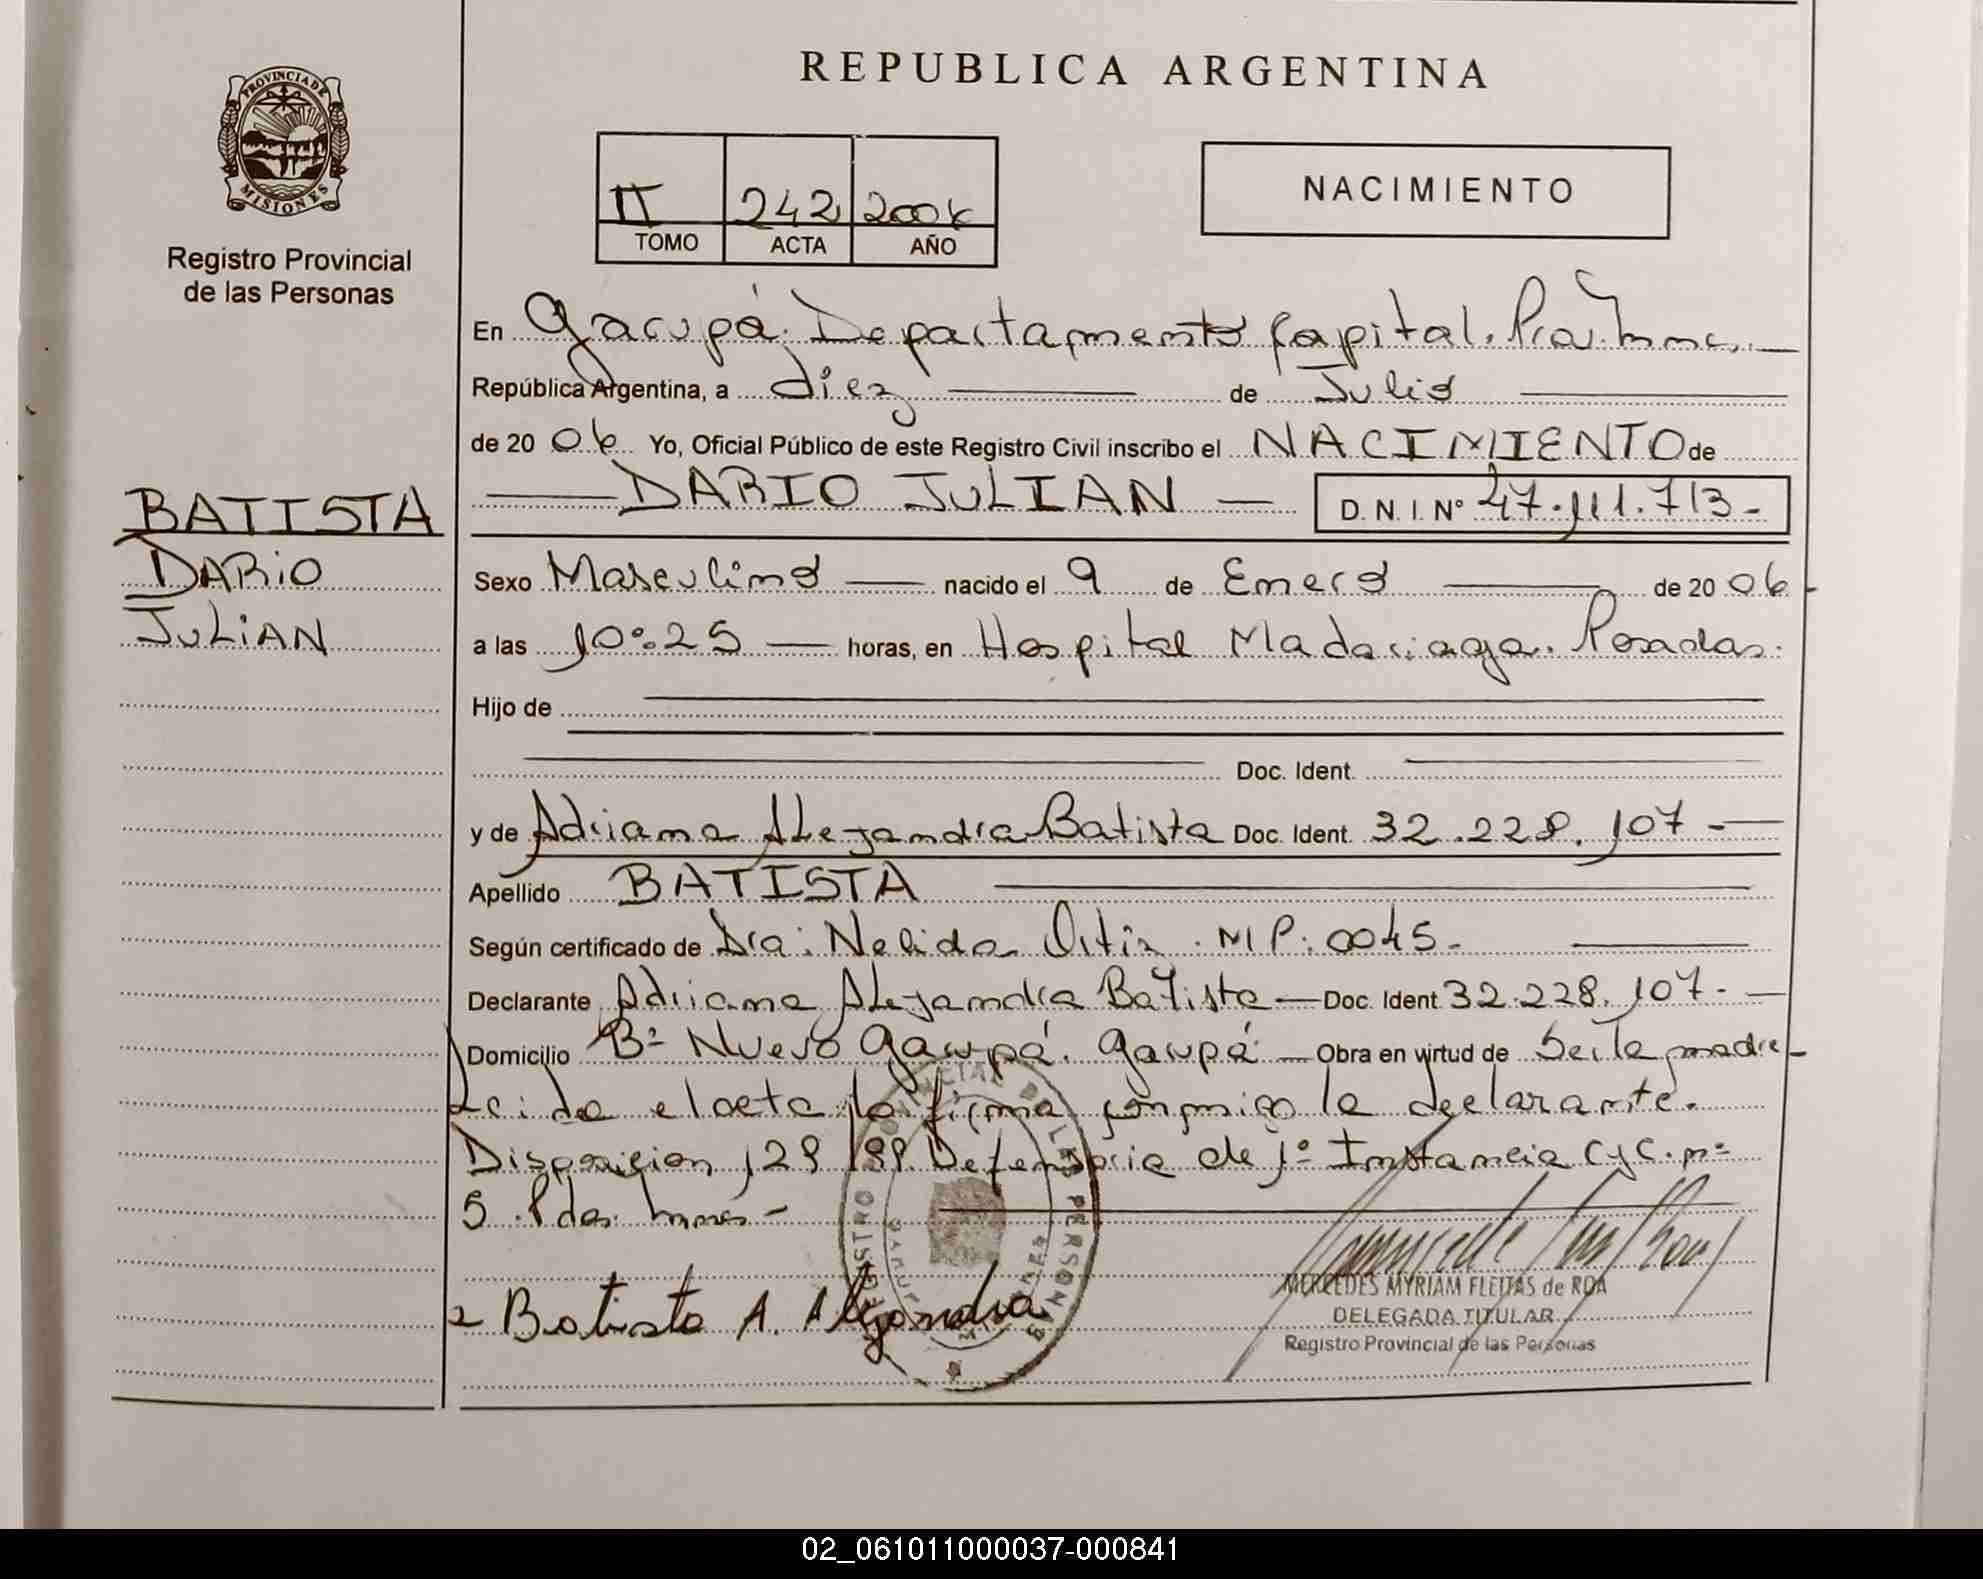 REPUBLICA ARGENTINA
PROVINCIA DE MISIONES
Registro Provincial
de las Personas
II 242 2006
TOMO ACTA AÑO
NACIMIENTO
En Garupá. Departamento Capital. Prov. Mnes.
República Argentina, a diez de Julio
de 20 06 Yo, Oficial Público de este Registro Civil inscribo el NACIMIENTO de
DARIO JULIAN D. N. I. Nº 47.111.713-
BATISTA
DARIO
JULIAN
Sexo Masculino nacido el 9 de Enero de 20 06
a las 10:25 horas, en Hospital Madariaga. Posadas.
Hijo de
Doc. Ident.
y de Adriana Alejandra Batista Doc. Ident. 32.228.107-
Apellido BATISTA
Según certificado de Dra: Nelida Ortiz. MP: 0045-
Declarante Adriana Alejandra Batista Doc. Ident 32.228.107-
Domicilio Bº Nuevo Garupá. Garupá Obra en virtud de ser la madre
Leida el acta la firma conmigo la declarante.
Disposicion 129/99. Defensoria de 1º Instancia CyC. nº
5. Pdas. Mnes-
Batista A. Alejandra
MERCEDES MYRIAM FLEITAS de ROA
DELEGADA TITULAR
Registro Provincial de las Personas
02_061011000037-000841